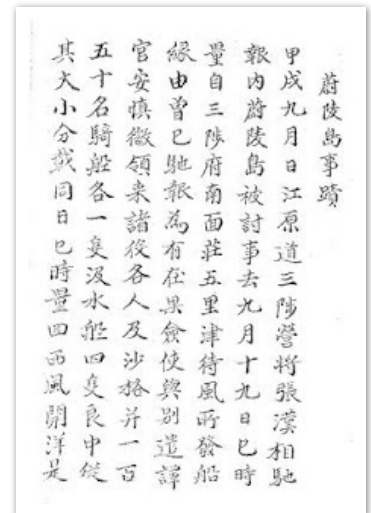 蔚陵島事蹟
甲戌九月日江原道三陟營將張漢相馳
報內蔚陵島被討事去九月十九日巳時
量自三陟府南面莊五里津待風所發船
緣由曾已馳報爲有在果僉使與別遣譯
官安愼徽領来諸役各人及沙格并一百
五十名騎船各一隻汲水船四隻良中從
其大小分載同日巳時量回西風開洋是